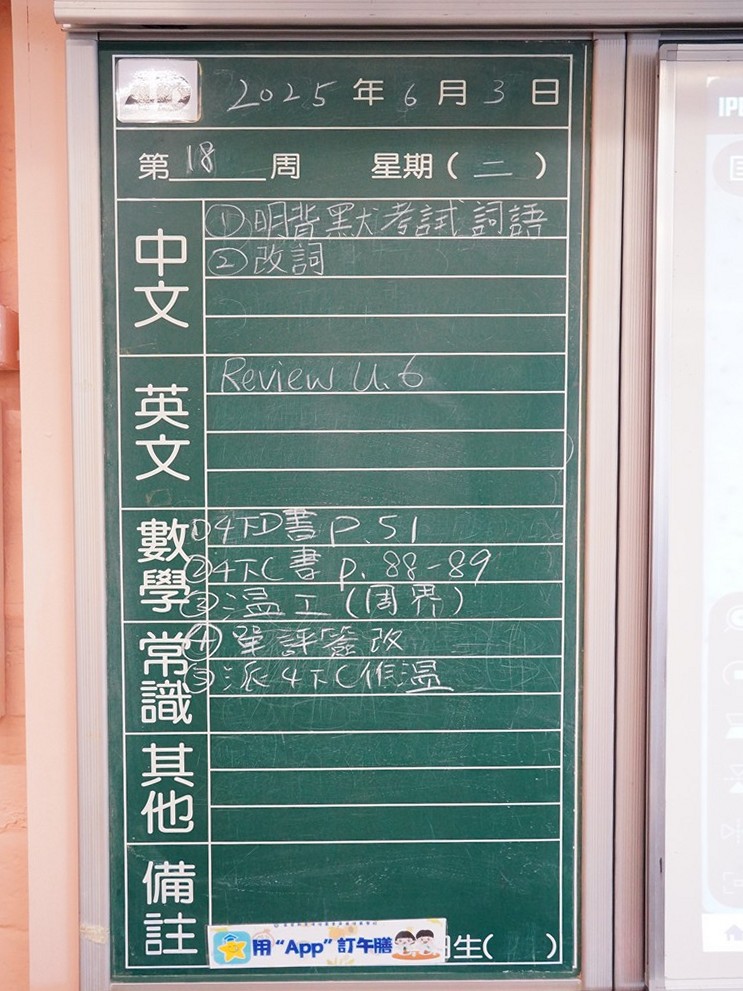 2025年6月3日
第18周 星期(二)
中文
①明背默考試詞語
②改詞
英文
Review U.6
數學
①4下D書 P.51
②4下C書 P.88-89
③溫工(周界)
常識
④單評簽改
⑤派4下C作溫
其他
備註
用“App”訂午膳
生( )
IP